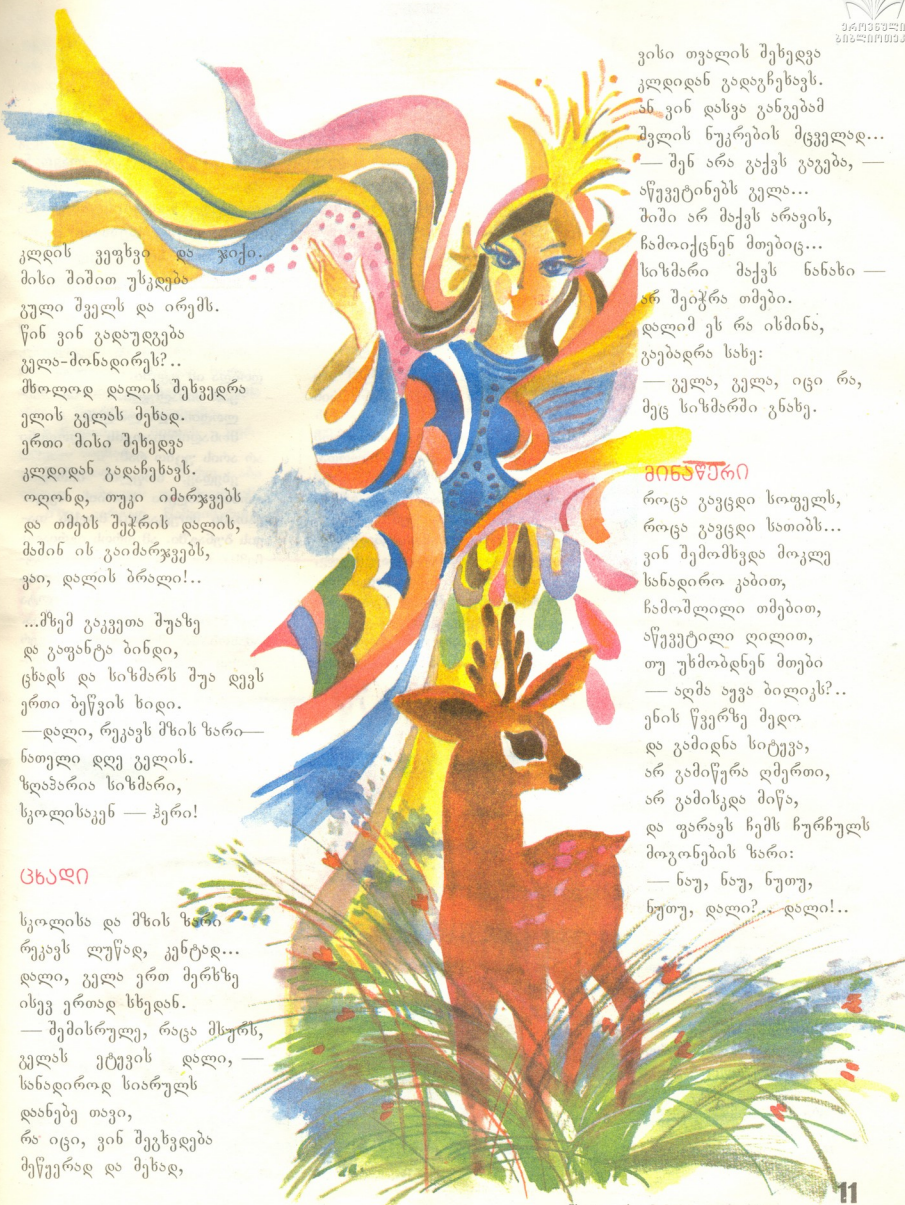 ეროვნული
ბიბლიოთეკა
კლდის ვეფხვი და ჯიქი.
მისი შიშით უსკდება
გული შველს და ირემს.
წინ ვინ გადაუდგება
გელა-მონადირეს?..
მხოლოდ დალის შეხვედრა
ელის გელას მეხად.
ერთი მისი შეხედვა
კლდიდან გადაჩეხავს.
ოღონდ, თუკი იმარჯვებს
და თმებს შეჭრის დალის,
მაშინ ის გაიმარჯვებს,
ვაი, დალის ბრალი!..
...მზემ გაკვეთა შუაზე
და გაფანტა ბინდი,
ცხადს და სიზმარს შუა დევს
ერთი ბეწვის ხიდი.
—დალი, რეკავს მზის ზარი—
ნათელი დღე გელის.
ზღაპარია სიზმარი,
სკოლისაკენ — ჰერი!
ცხადი
სკოლისა და მზის ზარი
რეკავს ლუწად, კენტად...
დალი, გელა ერთ მერხზე
ისევ ერთად სხედან.
— შემისრულე, რაცა მსურს,
გელას ეტყვის დალი, —
სანადიროდ სიარულს
დაანებე თავი,
რა იცი, ვინ შეგხვდება
მეწყერად და მეხად,
ვისი თვალის შეხედვა
კლდიდან გადაგჩეხავს.
ან ვინ დასვა განგებამ
შვლის ნუკრების მცველად...
— შენ არა გაქვს გაგება, —
აწყვეტინებს გელა...
შიში არ მაქვს არავის,
ჩამოიქცნენ მთებიც...
სიზმარი მაქვს ნანახი —
არ შეიჭრა თმები.
დალიმ ეს რა ისმინა,
გაებადრა სახე:
— გელა, გელა, იცი რა,
მეც სიზმარში გნახე.
მინაწერი
როცა გავცდი სოფელს,
როცა გავცდი სათიბს...
ვინ შემომხვდა მოკლე
სანადირო კაბით,
ჩამოშლილი თმებით,
აწყვეტილი ღილით,
თუ უხმობდნენ მთები
— აღმა აყვა ბილიკს?..
ენის წვერზე მედო
და გამიდნა სიტყვა,
არ გამიწყრა ღმერთი,
არ გამისკდა მიწა,
და ფარავს ჩემს ჩურჩულს
მოგონების ზარი:
— ნაუ, ნაუ, ნუთუ,
ნუთუ, დალი?.. დალი!..
11